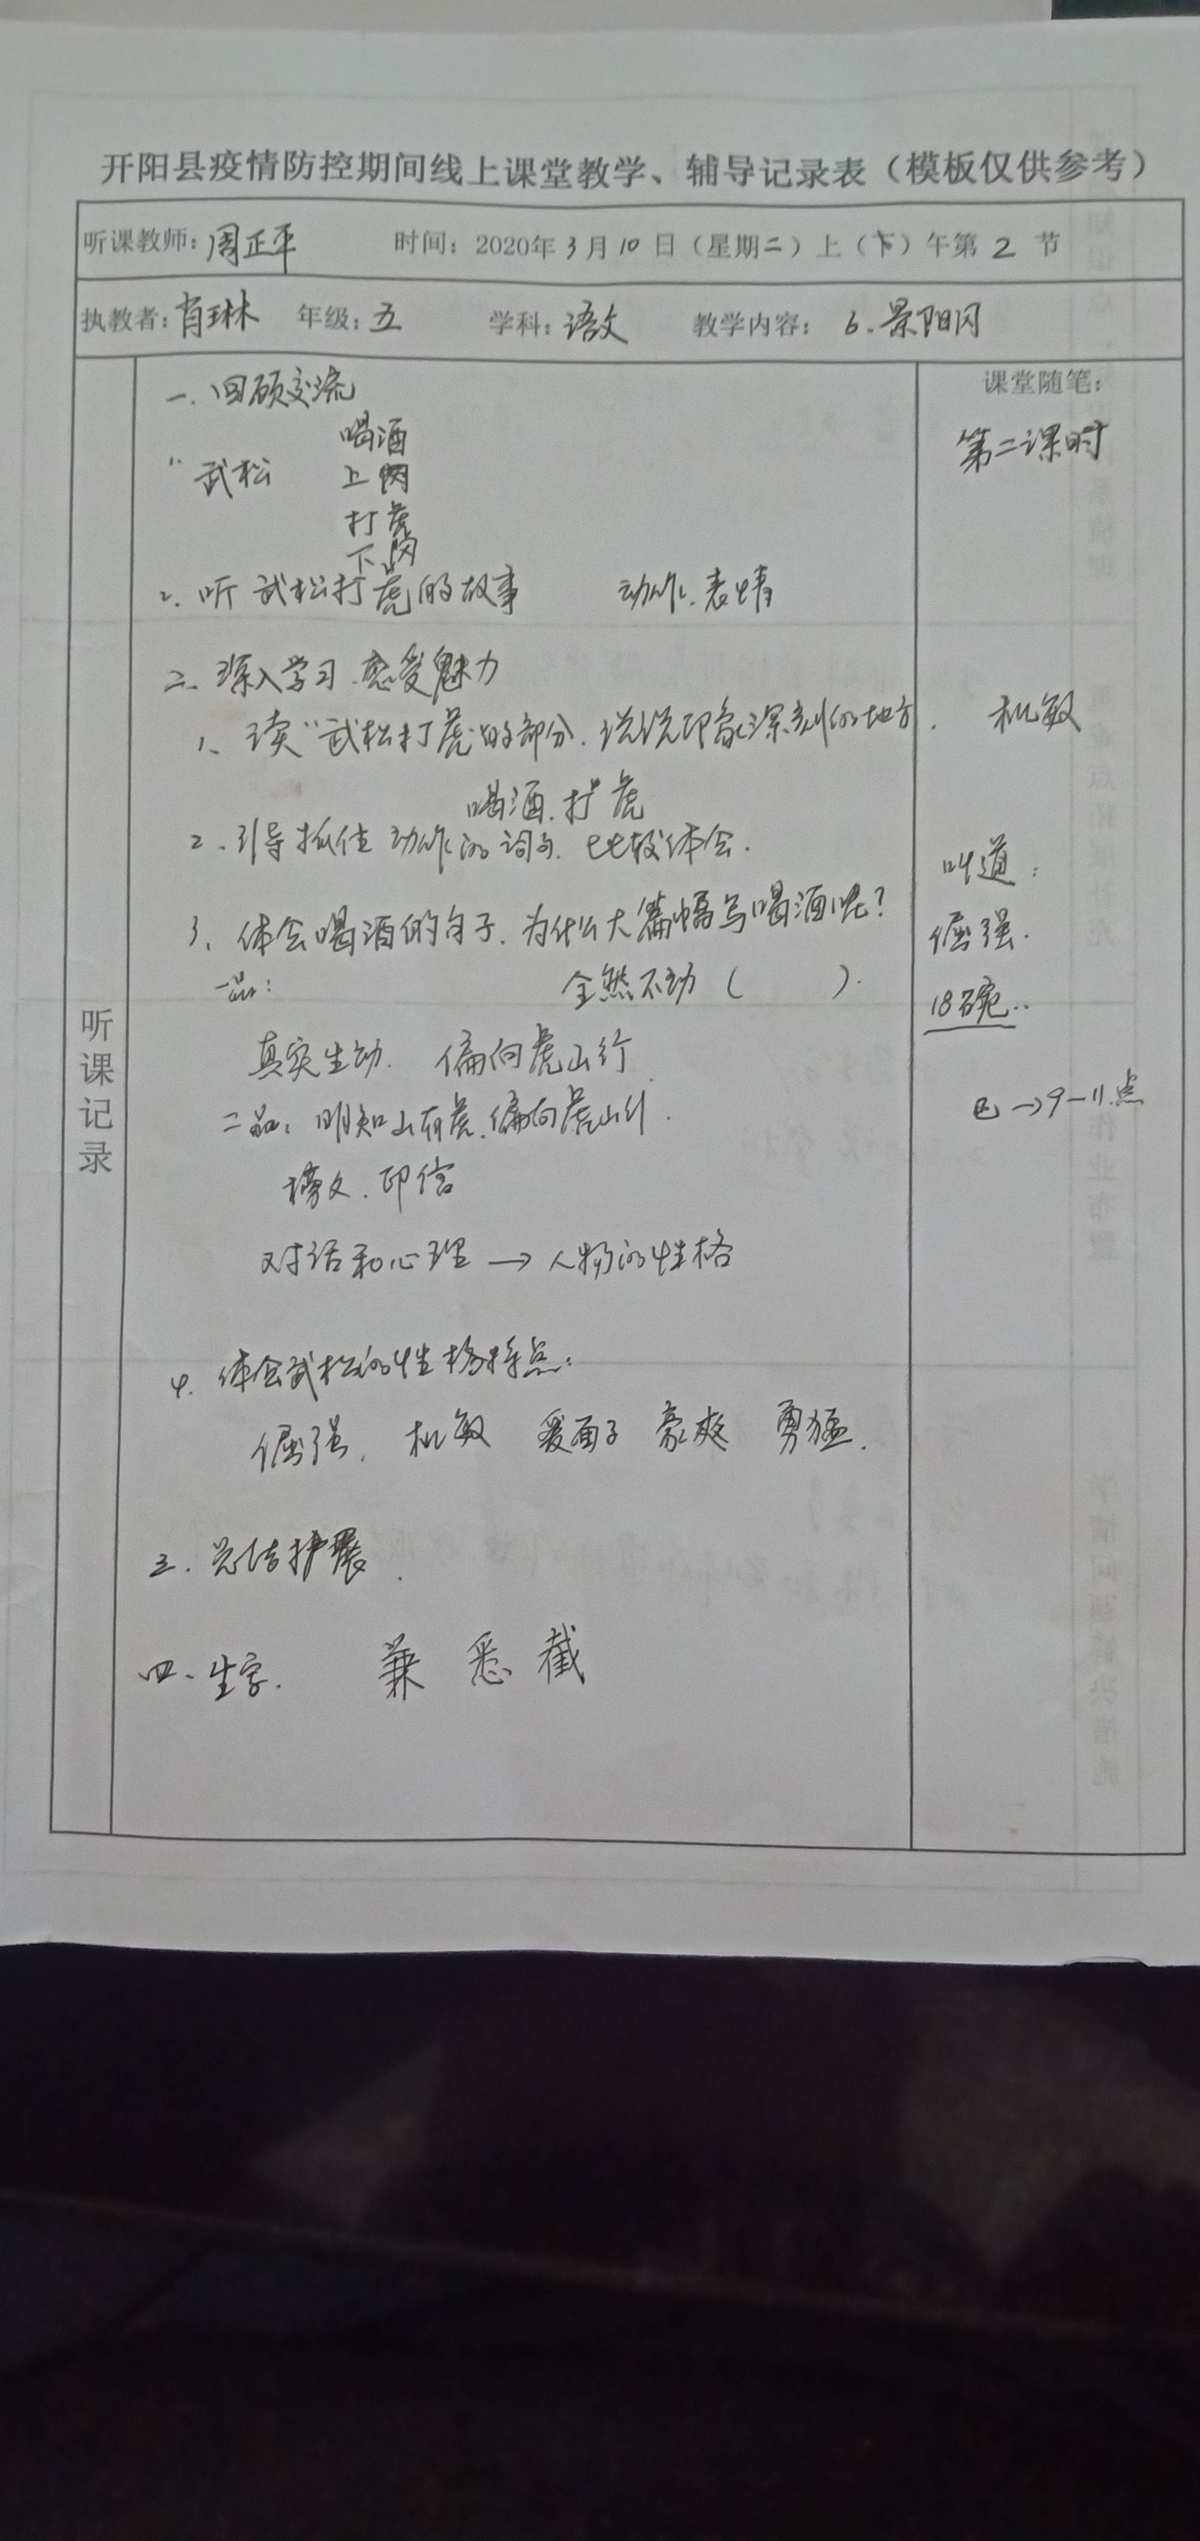 开阳县疫情防控期间线上课堂教学、辅导记录表（模板仅供参考）
听课教师：周正平 时间：2020年3月10日（星期二）上（下）午第2节
执教者：肖琳 年级：五 学科：语文 教学内容：6.景阳冈
听课记录
课堂随笔：
一、回顾交流
第二课时
喝酒
1、武松 上冈
打虎
下冈
2、听武松打虎的故事 动作、表情
二、深入学习 感受魅力
1、读“武松打虎”的部分，说说印象深刻的地方．
机敏
喝酒、打虎
2、引导抓住动作的词句，比较体会．
叫道：
3、体会喝酒的句子，为什么大篇幅写喝酒呢？
倔强．
一品： 全然不动（ ）．
18碗..
真实生动． 偏向虎山行
二品：明知山有虎，偏向虎山行．
巳→9—11点
榜文、印信
对话和心理→人物的性格
4、体会武松的性格特点：
倔强、机敏 爱面子 豪爽 勇猛．
三、总结扩展．
四、生字． 兼 悉 截